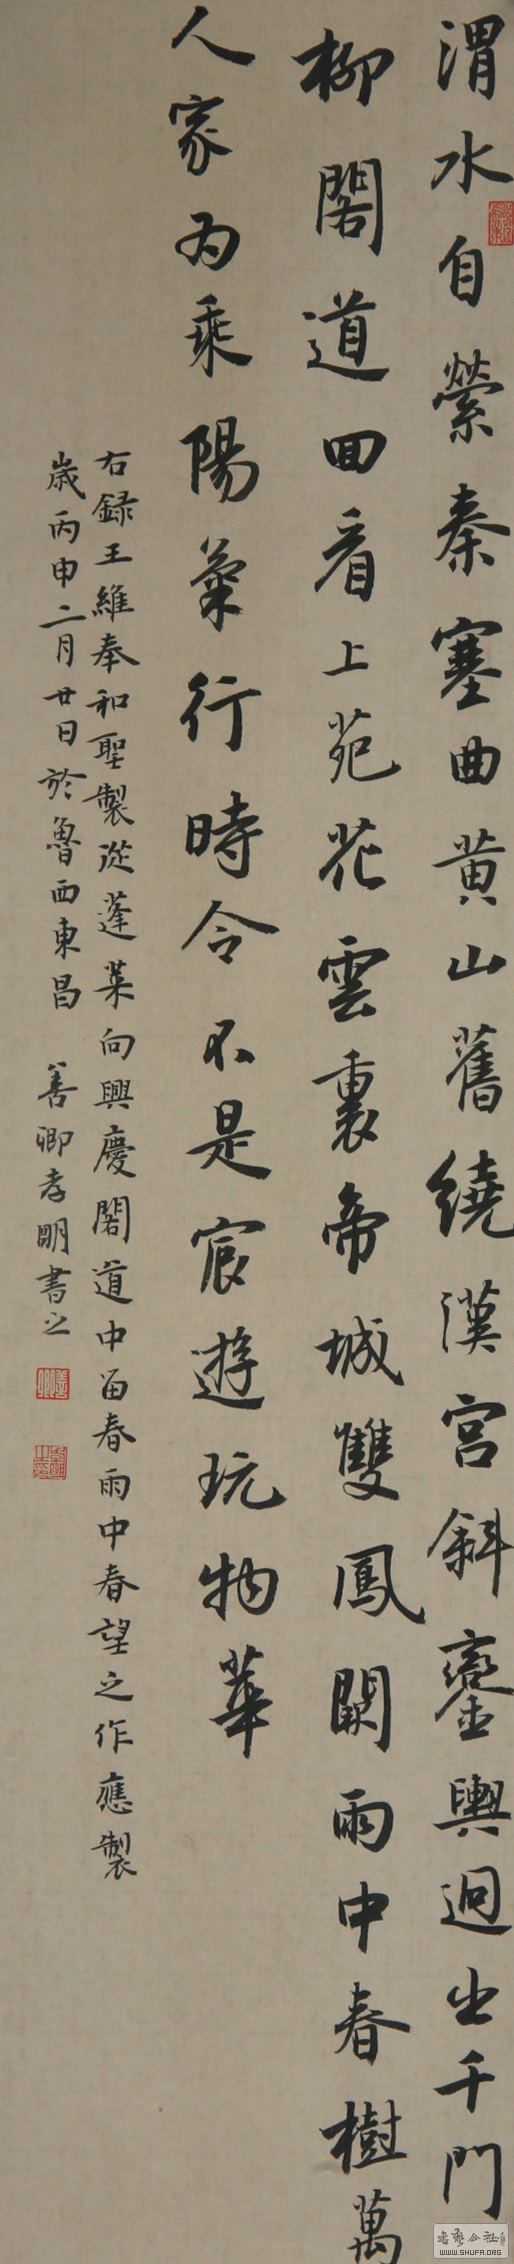 渭水自縈秦塞曲黄山舊繞漢宮斜鑾輿迥出千門
柳閣道回看上苑花雲裏帝城雙鳳闕雨中春樹萬
人家為乘陽氣行時令不是宸遊玩物華
右録王維奉和聖製從蓬萊向興慶閣道中留春雨中春望之作應製
歲丙申二月廿日於魯西東昌 善卿孝明書之
書藝公社
WWW.SHUFA.ORG